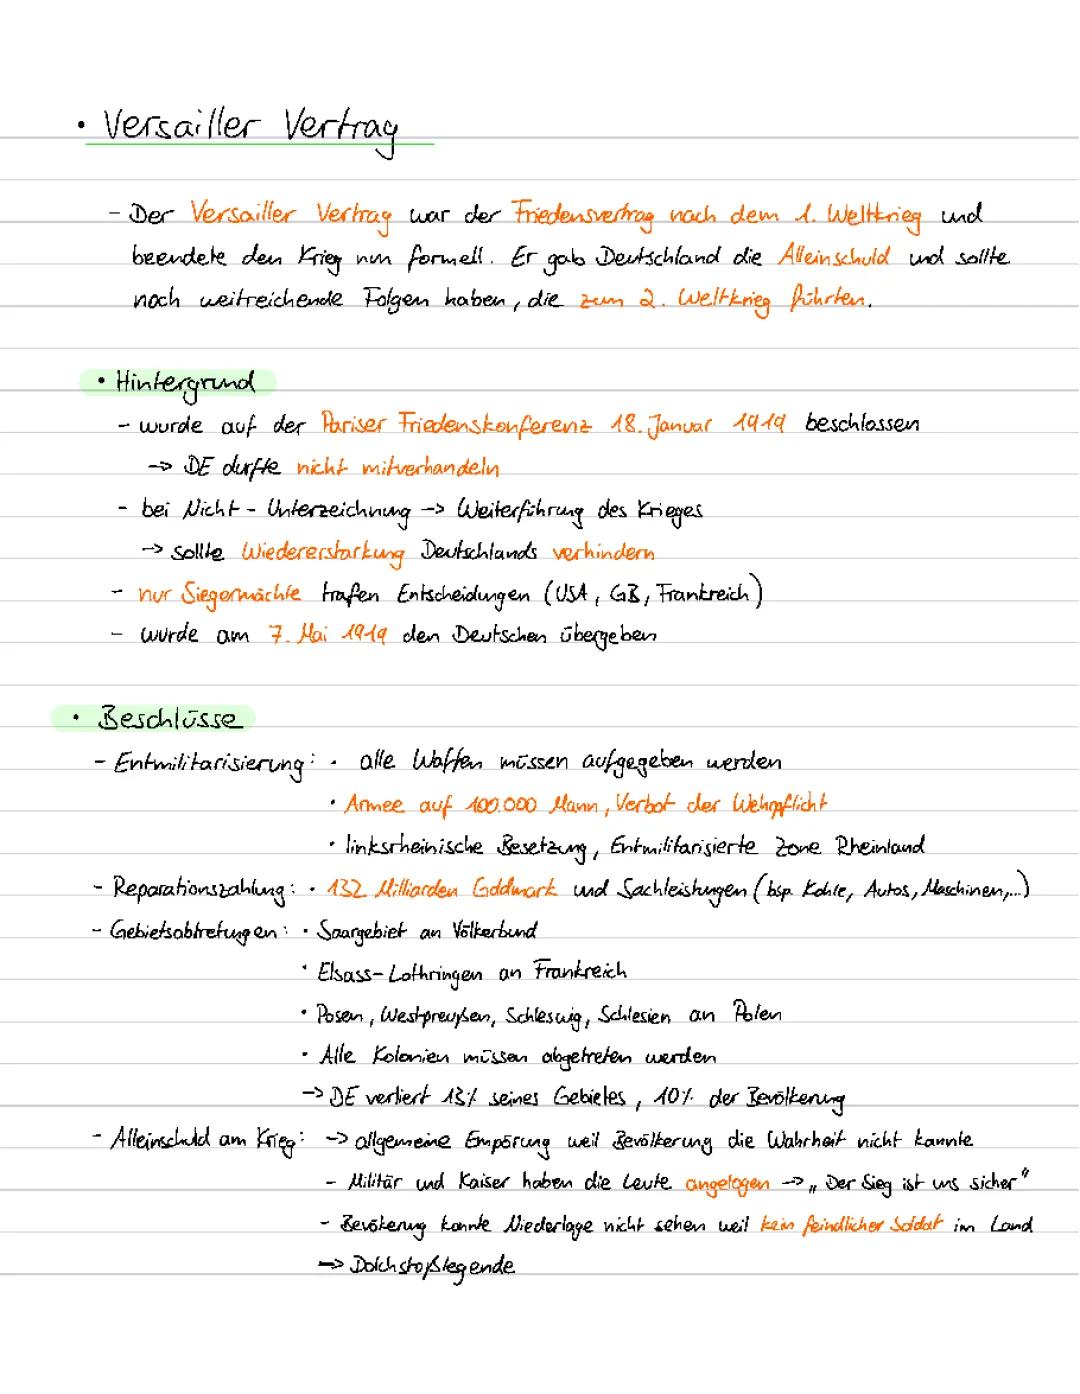 • Versailler Vertrag
- Der Versailler Vertrag war der Friedensvertrag nach dem 1. Weltkrieg und
beendete den Krieg nun formell. Er gab Deutschland die Alleinschuld und sollte
noch weitreichende Folgen haben, die zum 2. Weltkrieg führten.
• Hintergrund
- wurde auf der Pariser Friedenskonferenz 18. Januar 1919 beschlossen
-> DE durfte nicht mitverhandeln
- bei Nicht-Unterzeichnung -> Weiterführung des Krieges
-> sollte Wiedererstarkung Deutschlands verhindern
- nur Siegermächte trafen Entscheidungen (USA, GB, Frankreich)
- wurde am 7. Mai 1919 den Deutschen übergeben
• Beschlüsse
- Entmilitarisierung: • alle Waffen müssen aufgegeben werden
• Armee auf 100.000 Mann, Verbot der Wehrpflicht
• linksrheinische Besetzung, Entmilitarisierte Zone Rheinland
- Reparationszahlung: • 132 Milliarden Goldmark und Sachleistungen (bsp. Kohle, Autos, Maschinen,...)
- Gebietsabtretungen: • Saargebiet an Völkerbund
• Elsass-Lothringen an Frankreich
• Posen, Westpreußen, Schleswig, Schlesien an Polen
• Alle Kolonien müssen abgetreten werden
-> DE verliert 13% seines Gebietes, 10% der Bevölkerung
- Alleinschuld am Krieg: -> allgemeine Empörung weil Bevölkerung die Wahrheit nicht kannte
- Militär und Kaiser haben die Leute angelogen -> „Der Sieg ist uns sicher"
- Bevökerung konnte Niederlage nicht sehen weil kein feindlicher Soldat im Land
-> Dolchstoßlegende